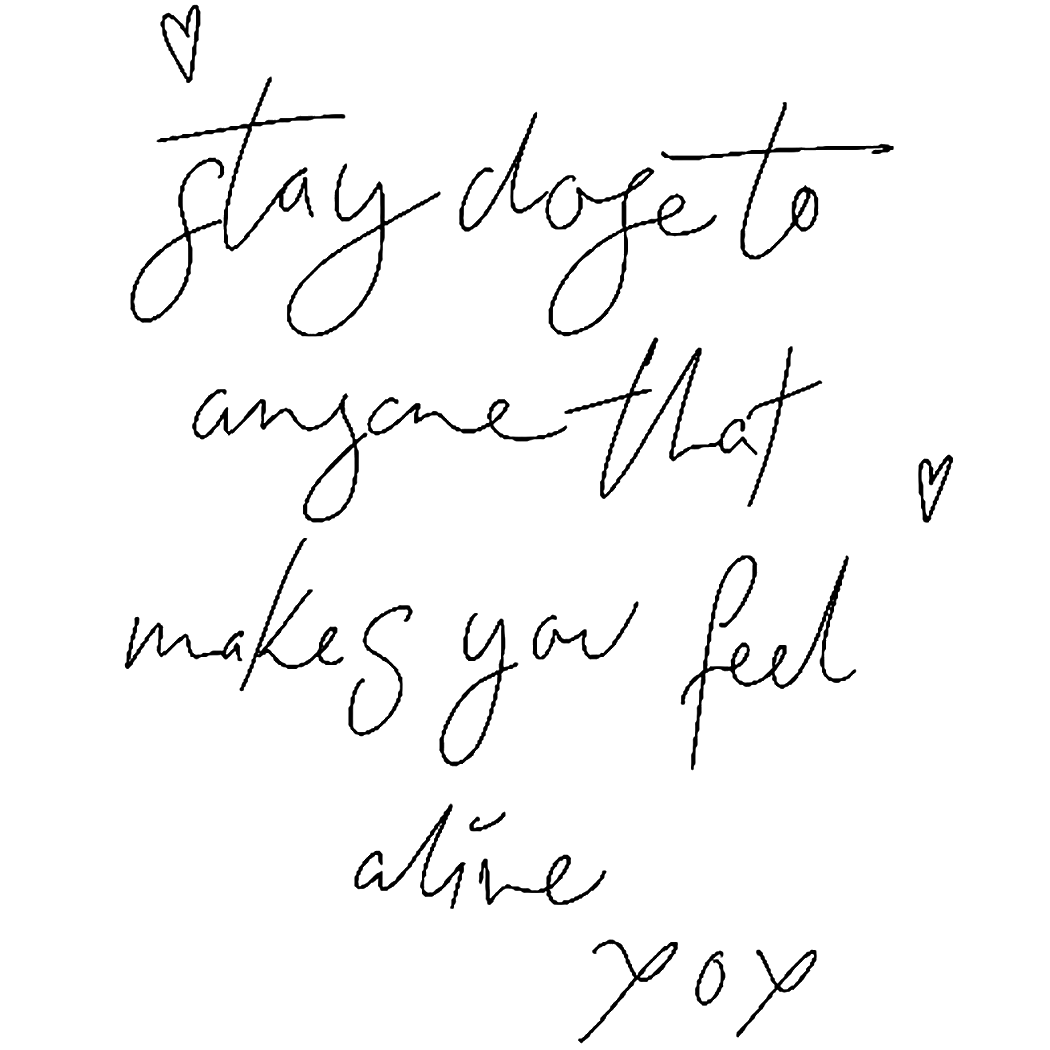 stay close to
anyone that
makes you feel
alive
xox